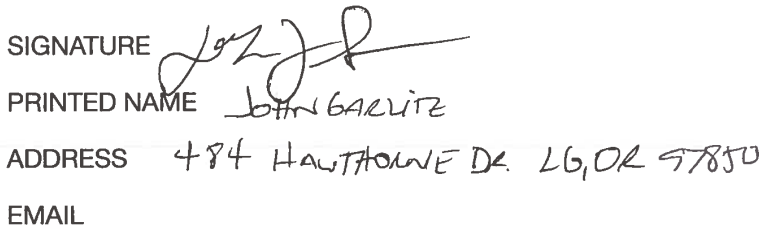 SIGNATURE
PRINTED NAME JOHN GARLITZ
ADDRESS 484 HAWTHORNE DR. LG, OR 97850
EMAIL